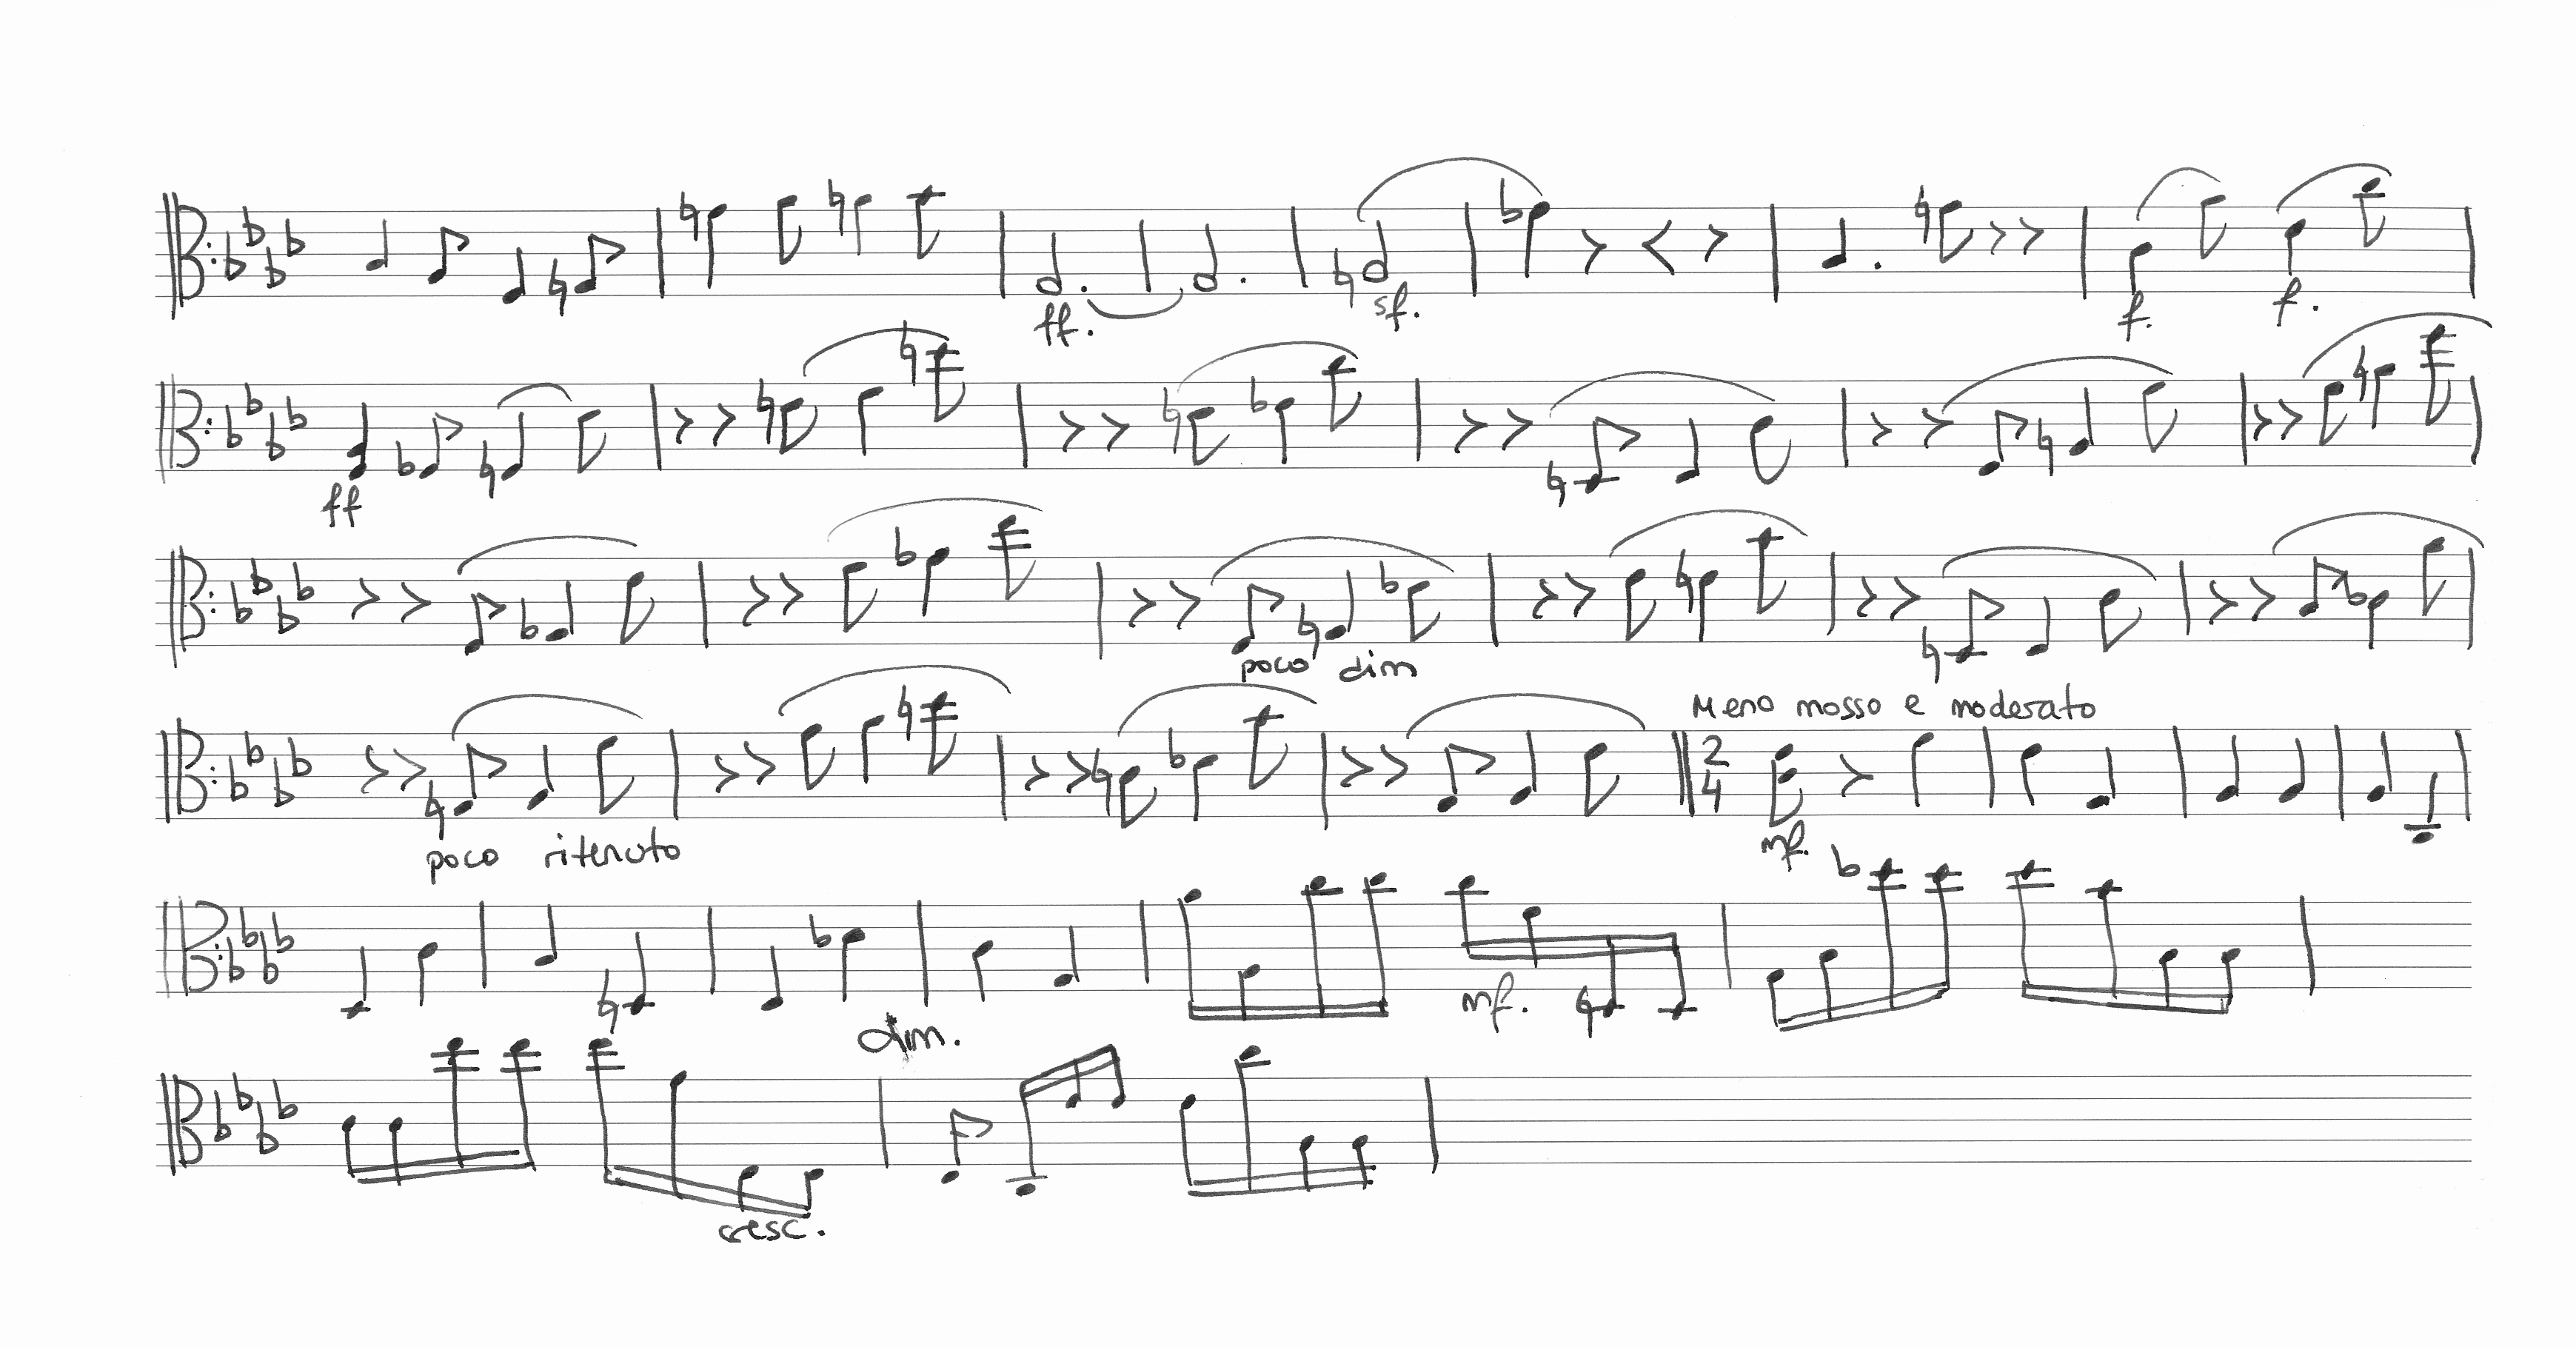 ff. sf. f. f.
ff
poco dim
Meno mosso e moderato
2
4
poco ritenuto mf.
dim. mf.
cresc.